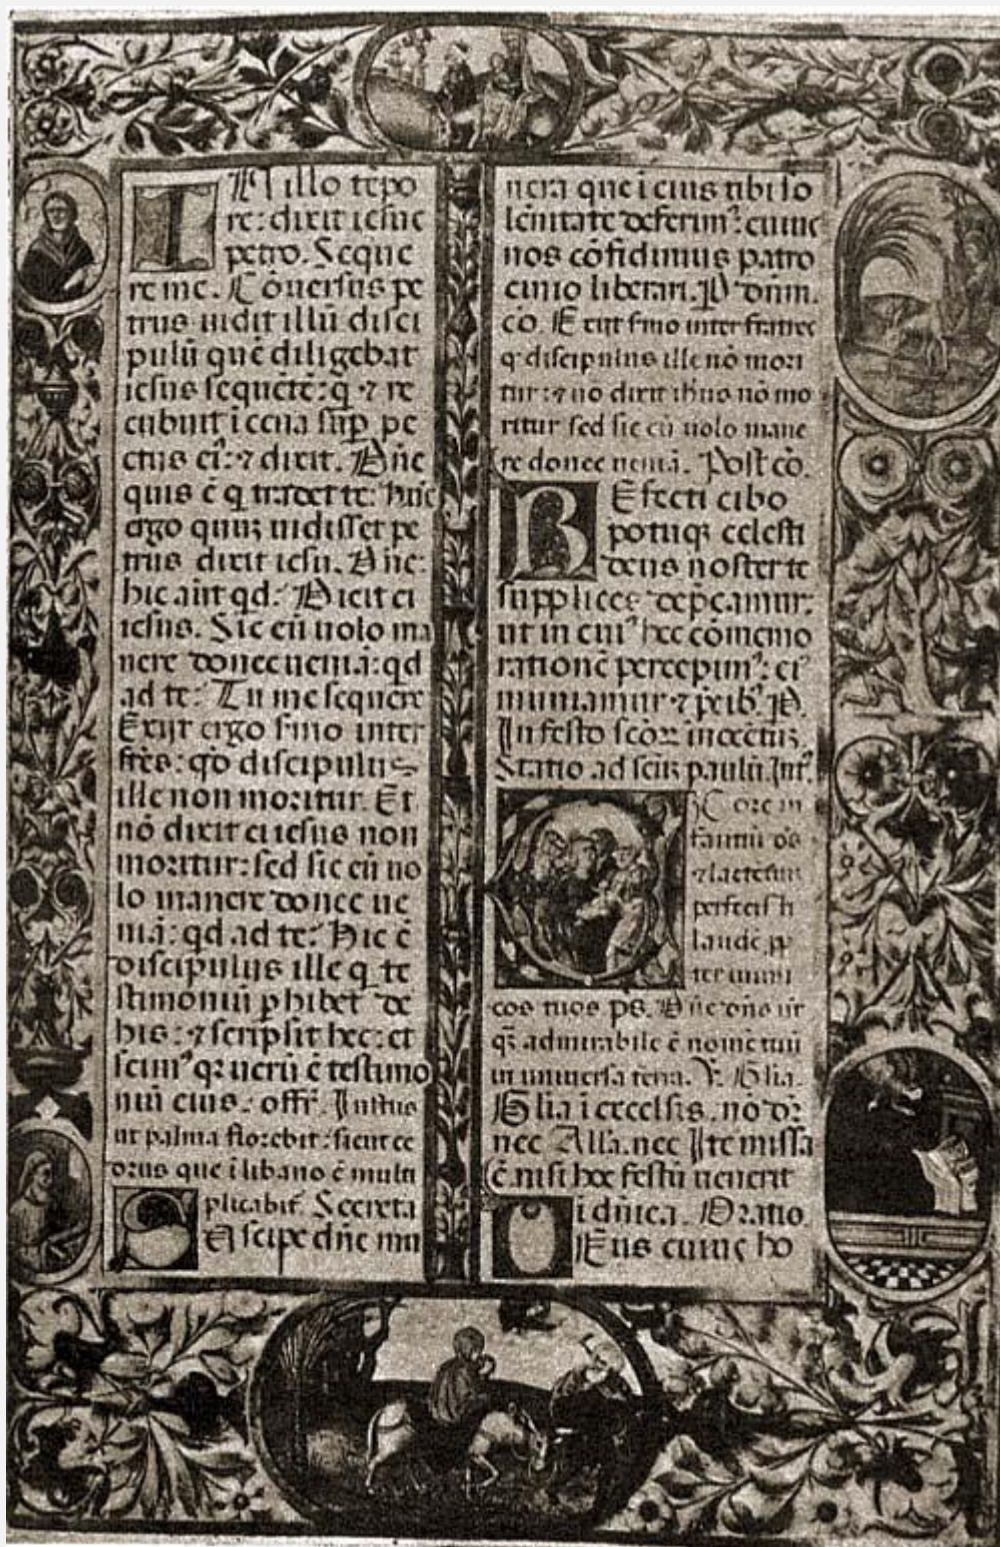 IN illo tẽpo
re: dixit iesus
petro. Seque
re me. Cõuersus pe
trus uidit illũ disci
pulũ quẽ diligebat
iesus sequẽtẽ: q ⁊ re
cubuit ĩ cena sup̱ pe
ctus eiꝰ: ⁊ dixit. Dñe
quis ẽ q tradet te: hũc
ergo quũ uidisset pe
trus dixit iesu. Dñe:
hic aũt qd: Dicit ei
iesus. Sic eũ uolo ma
nere donec ueniã: qd
ad te: Tu me sequere
Exijt ergo s̃mo inter
fr̃es: qð discipulus
ille non moritur. Et
nõ dixit ei iesus non
moritur: sed sic eũ uo
lo manere donec ue
niã: qd ad te: Hic ẽ
discipulus ille q te
stimoniũ p̱hibet de
his: ⁊ scripsit hec: et
scimꝰ qꝛ uerũ ẽ testimo
niũ eius. offr̃. Iustus
ut palma florebit: sicut ce
drus que ĩ libano ẽ multi
plicabit̃. Secreta
Suscipe dñe mu
nera que ĩ eius tibi so
lẽnitate deferimꝰ: cuiꝰ
nos cõfidimus patro
cinio liberari. P dñm.
cõ. Exiit s̃mo inter fratres
q discipulus ille nõ mori
tur: ⁊ nõ dixit ihus nõ mo
ritur sed sic eũ uolo mane
re donec ueniã. Post cõ.
REfecti cibo
potuqꝫ celesti
deus noster te
supplices dep̱camur:
ut in cuiꝰ hec cõmemo
rationẽ percepimꝰ: eiꝰ
muniamur ⁊ p̃cibꝰ. P.
In festo scõꝝ innocẽtiũ.
Statio ad scm̃ paulũ. Intr̃.
EX ore in
fantiũ ds̃
⁊ lactẽtiũ
perfecisti
laudẽ p̱p
ter inimi
cos tuos ps̃. Dñe dñs nr̃
q̃ admirabile ẽ nomẽ tuũ
in uniuersa terra. V. Glia.
Glia ĩ excelsis. nõ dr̃
nec Alla. nec Ite missa
ẽ nisi hoc festũ uenerit
ĩ dñica. Oratio.
DEus cuiꝰ ho